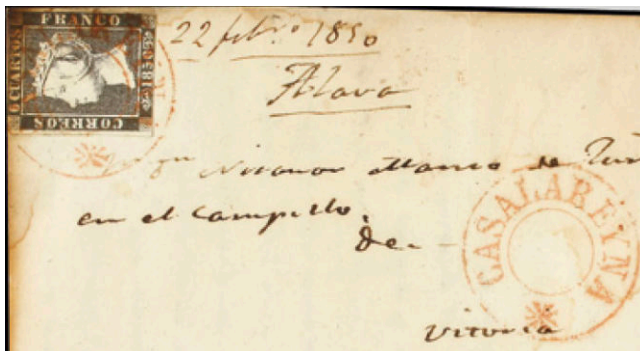 FRANCO
6 CUARTOS
1850
CORREOS
22 febro 1850
Alava
Nicanor Manso de
en el Campillo.
de
CASALAREYNA
Vitoria